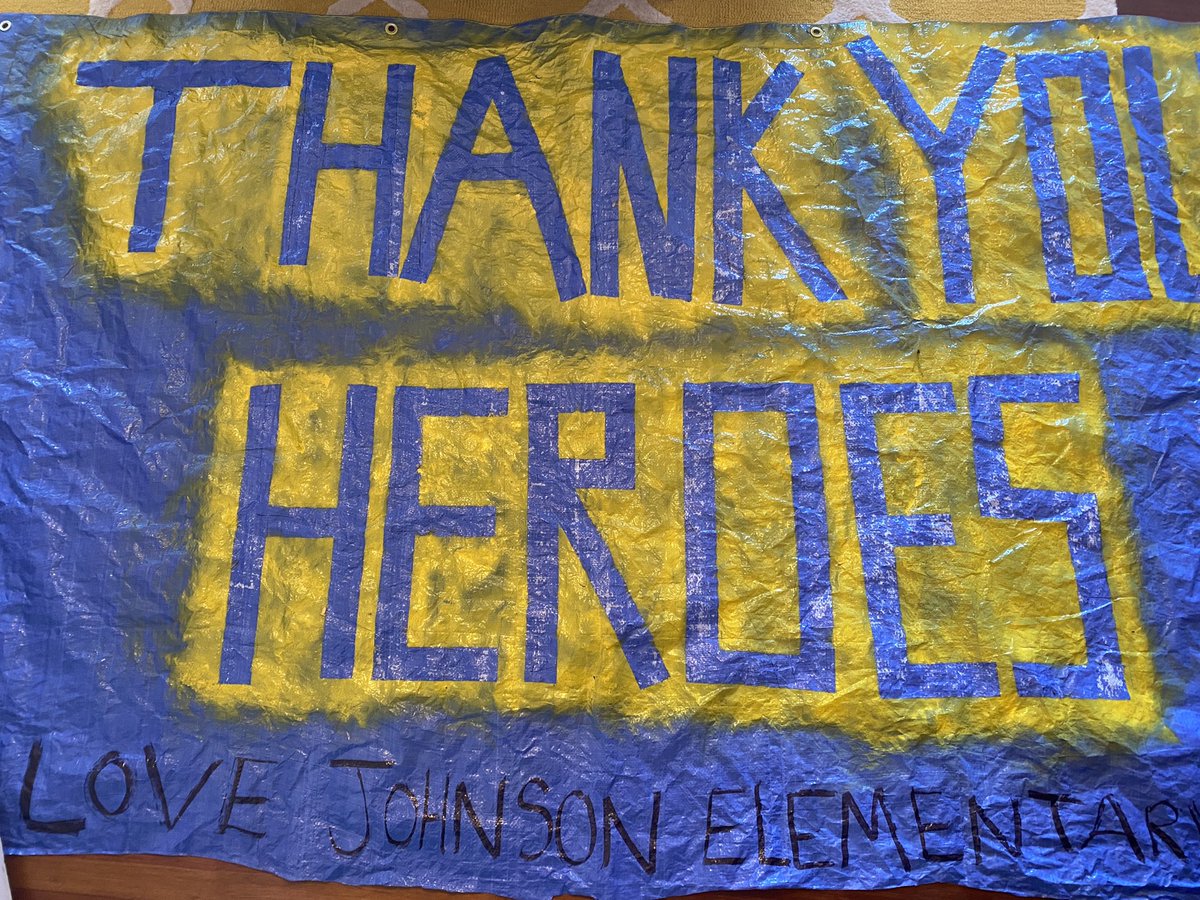 THANK YOU
HEROES
LOVE JOHNSON ELEMENTARY